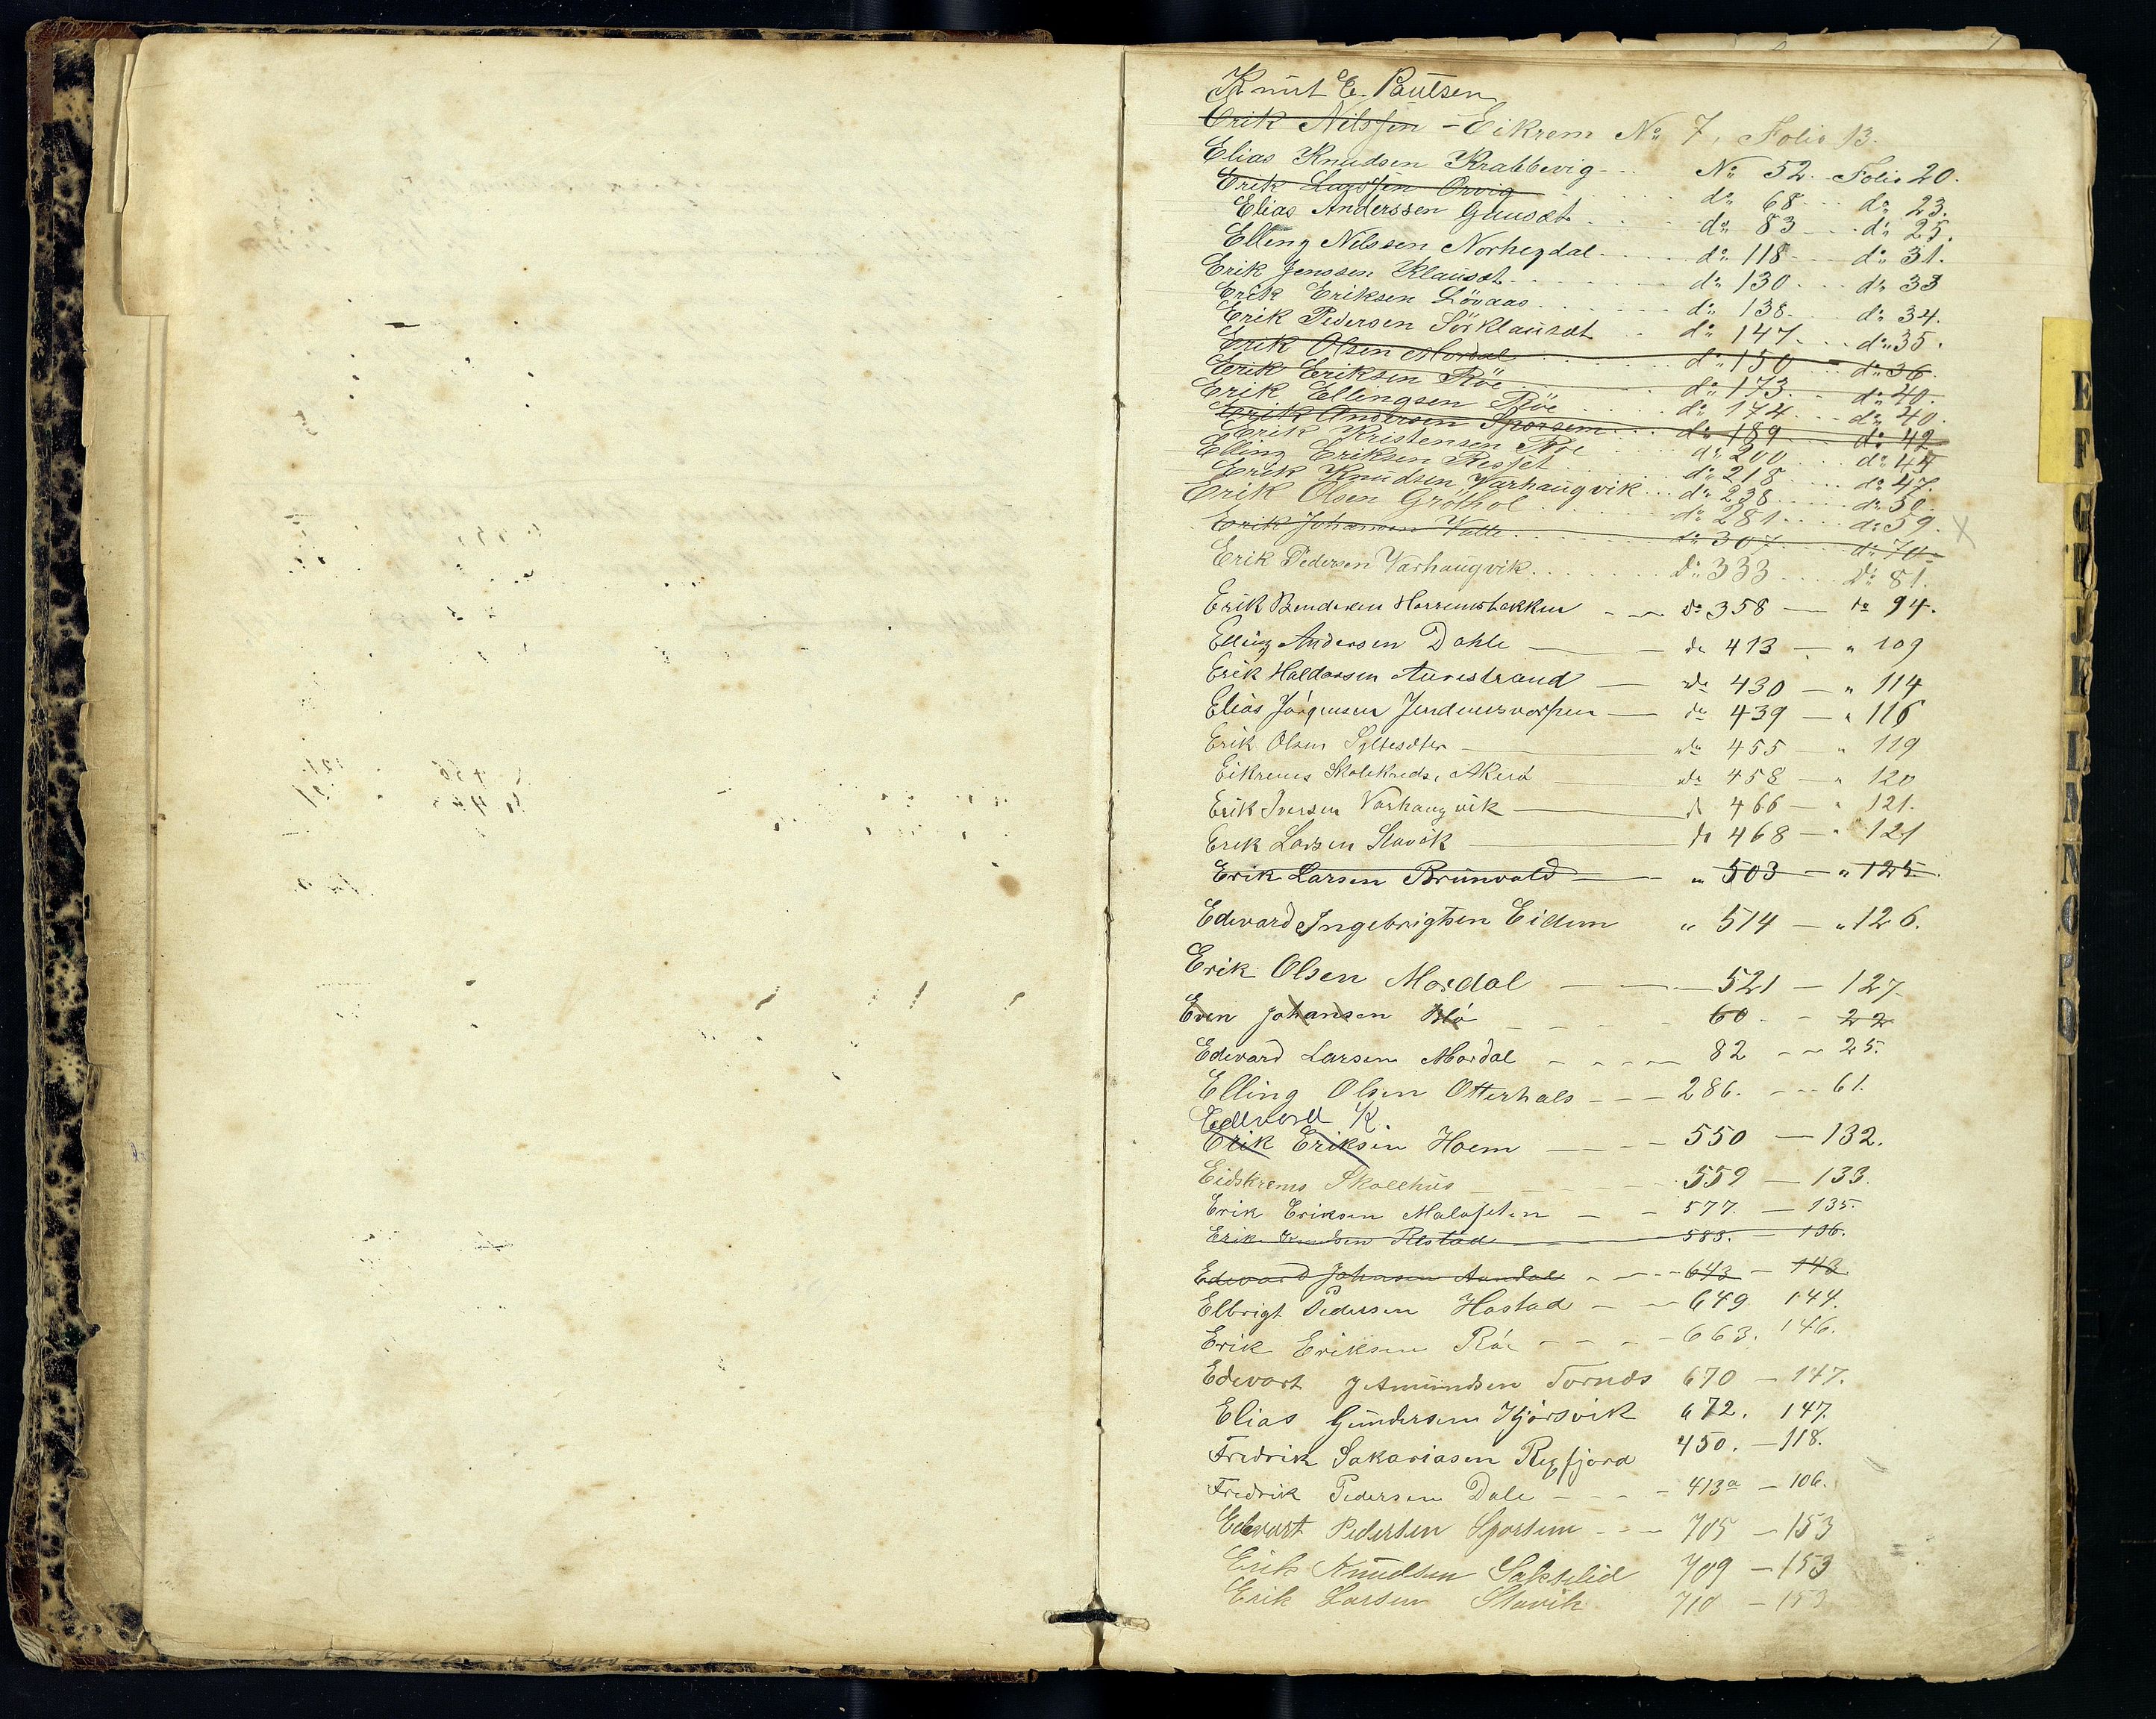 Knut E. Paulsen
Erik Nilssen - Eikrem No 7, Folio 13.
Elias Knudsen Krabbevig - - - No 52. Folio 20.
Erik Larssen Orvig do 68 do 23.
Elias Anderssen Gauset do 83 do 25.
Elling Nilssen Norhegdal do 118 do 31.
Erik Jenssen Klauset do 130 do 33
Erik Eriksen Lövaas do 138. do 34.
Erik Pedersen Sörklauset do 147. do 35.
Erik Olsen Mordal do 150 do 36.
Erik Eriksen Röe do 173. do 40.
Erik Ellingsen Röe do 174. do 40.
Erik Andersen Sporsem do 189 do 42
Erik Kristensen Röe do 200 do 44
Elling Eriksen Resset do 218 do 47.
Erik Knudsen Varhaugvik do 238 do 50.
Erik Olsen Gröthol do 281 do 59. X
Erik Johansen Valle do 307 do 70.
Erik Pedersen Varhaugvik do 333 do 81.
Erik Bendixen do 358 — do 94.
Elling Andersen Dahle — do 413 — " 109
Erik Haldorsen Aurestrand — do 430 — " 114
Elias Jørgensen — do 439 — " 116
Erik Olsen Syltesæter — do 455 — " 119
Eikrems Skolekreds, Akerø — do 458 — " 120
Erik Iversen Varhaugvik — do 466 — " 121.
Erik Larsen Slavik — do 468 — " 121
Erik Larsen Brunvold — " 503 — " 125
Edvard Ingebrigtsen Eidem " 514 — " 126.
Erik Olsen Mordal — 521 — 127.
Even Johansen 60. - 22
Edevard Larsen Mordal - - - 82 - - 25.
Elling Olsen Otterhals - - - 286. - - - 61.
Edvard K.
Erik Eriksen Hoem — - - 550 — 132.
Eidskrems Skolehus 559 — 133.
Erik Eriksen Malosetern — - 577. — 135.
Erik Knudsen Restad 583. — 136.
Edevard Johnsen Aandal - - - 643 — 143
Elbrigt Pedersen Hostad — — 649 144.
Erik Eriksen Röe - - - - 663. 146.
Edevart J Amundsen Tornes 670 — 147.
Elias Gundersen Hjørsvik 672. 147.
Fredrik Sakariasen 450. — 118.
Fredrik Pedersen Dale - - - - 413a — 106.
Edevart Pedersen Sporsem - - - 705 — 153
Erik Knudsen 709 — 153
Erik Larsen Slavik 710 — 153
E
F
G
H
J
K
L
M
N
O
P